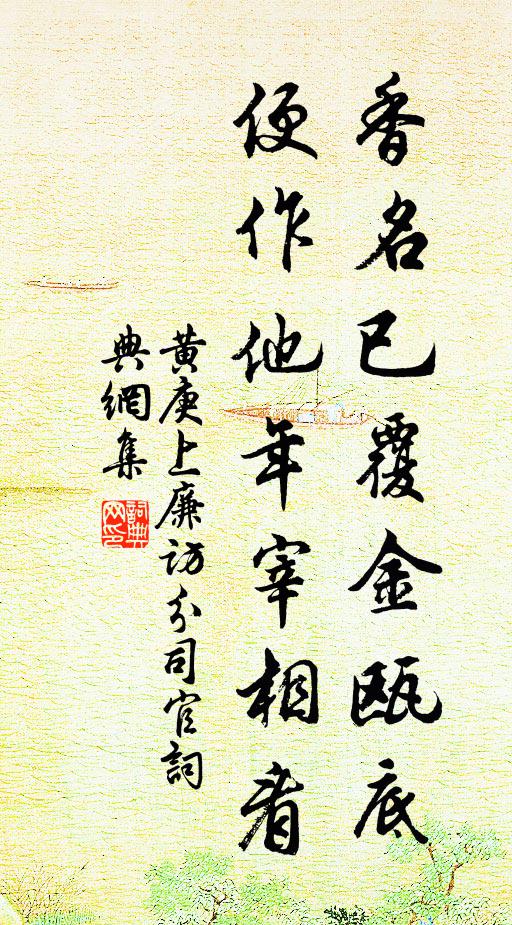 香名已覆金甌底
便作他年宰相看
黄庚上廉訪分司官詞
典網集
詞典
网印